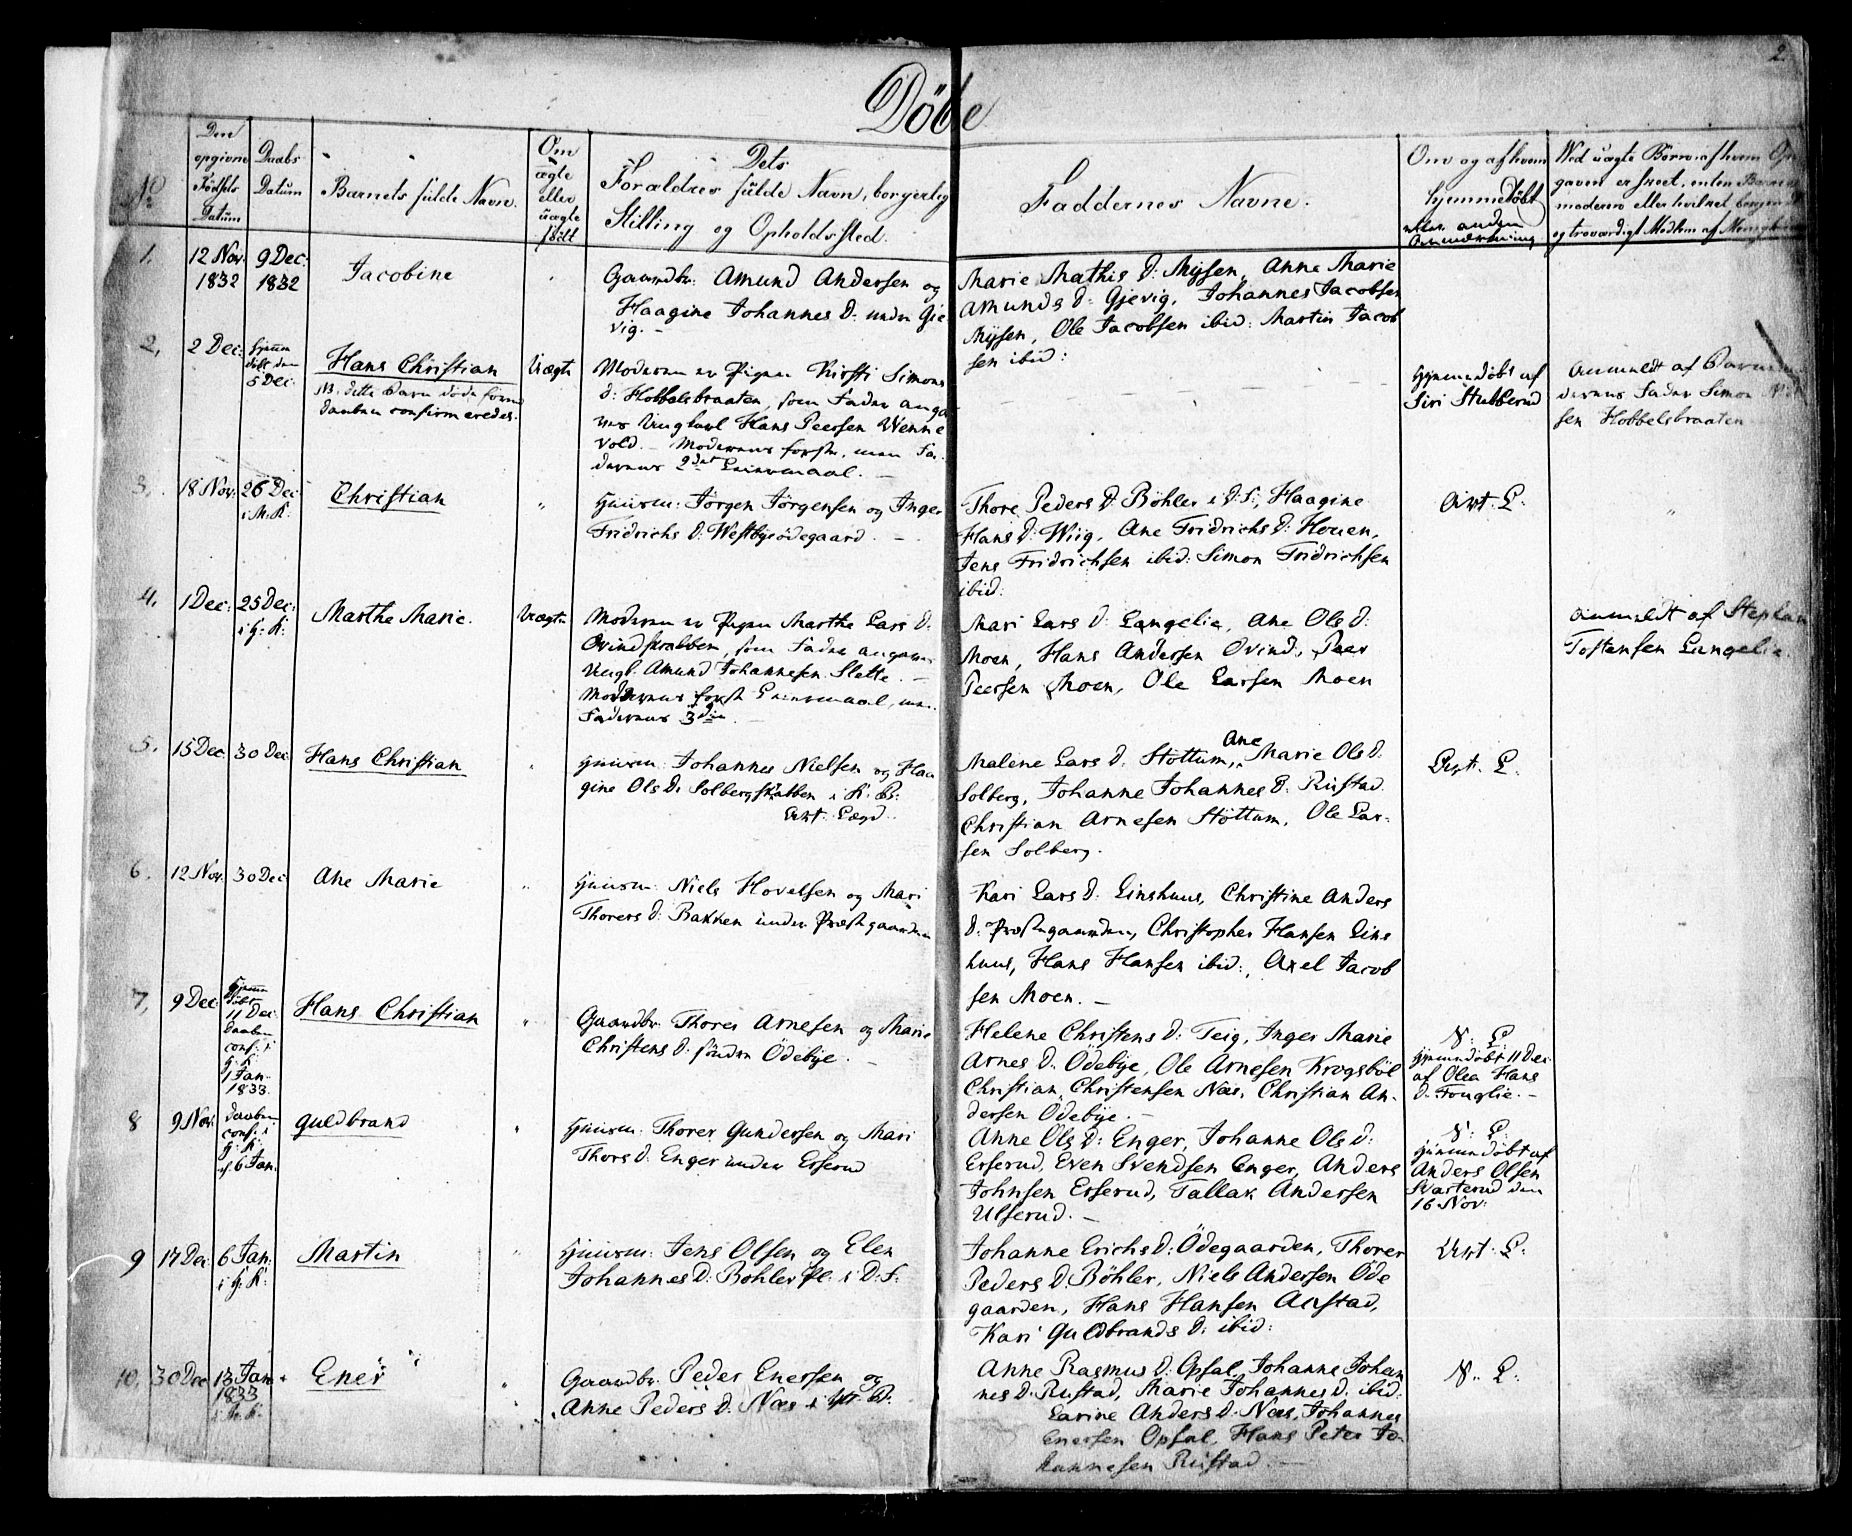 2.
Döbte
No
Den
opgivne
Födsels
Datum
Daabs
Datum
Barnets fulde Navn.
Om
ægte
eller
uægte
född
Dets
Forældres fulde Navn, borgerlig
Stilling og Opholdssted.
Faddernes Navne.
Om og af hvem
hjemmedöbt
eller anden
Anmærkning
Ved uægte Börn, af hvem
gaven er skeet, enten Barnets
moderen eller hvilket
og troværdigt Medlem af
1.
12 Nov.
1832
9 Dec:
1832
Jacobine
Gaardbr. Amund Andersen og
Haagine Johannes D: under Gje
vig. -
Marie Mathis D: Mysen, Anne Marie
Amunds D: Gjevig, Johannes Jacobsen
Mysen, Ole Jacobsen ibid: Martin Jacob
sen ibid:
2,
2 Dec:
hjem
döbt den
5 Dec.
Hans Christian
NB. dette Barn döde förend
daaben confirmeredes.
Uægte
Moderen er Pigen Kirsti Simons
D: Hobbelsbraaten, som Fader anga
ves Ungkarl Hans Peersen Wenne
vold. - Moderens forste, men Fa-
derens 2det Leiermaal. -
Hjemmedöbt af
Siri Stubberud
Anmeldt af Barne
derens Fader Simon
sen Hobbelsbraaten
3,
18 Nov:
26 Dec
i M. K.
Christian
Huusm: Jörgen Jörgensen og Inger
Fridrichs D: Westbyeödegaard. -
Thore Peders D: Böhler i D: S:, Haagine
Hans D: Wiig, Ane Fridrichs D: Houen,
Jens Fridrichsen ibid: Simon Fridrichsen
ibid:
4.
1 Dec:
25 Dec:
i H: K:
Marthe Marie.
Uægte
Moderen er Pigen Marthe Lars D:
Ovindskabben, som Fader angives
Ungk. Amund Johannesen Slette. -
Moderens forste Leiermaal, men
Faderens 3die. -
Mari Lars D: Langelie, Ane Ols D:
Moen, Hans Andersen Ovind, Peer
Peersen Moen, Ole Larsen Moen
Anmeldt af Stephan
Tostensen Langelie
5.
15 Dec
30 Dec
Hans Christian
Huusm: Johannes Nielsen og Haa
gine Ols D: Solbergskabben i K. B:
Malene Lars D: Stöttum, Ane Marie Ols D:
Solberg, Johanne Johannes D: Rustad.
Christian Arnesen Stöttum, Ole Lar-
sen Solberg.
6.
12 Nov.
30 Dec
Ane Marie
Huusm: Niels Hovelsen og Mari
Thorers D: Bakken under Præstgaarden
Kari Lars D: Linshuus, Christine Anders
D: Præstegaarden, Christopher Hansen Lins
huus, Hans Hansen ibid:, Axel Jacob
sen Moen. -
7,
9 Dec:
hjem
döbt
11 Dec
daaben
conf: i
H: K:
1 Jan.
1833.
Hans Christian
Gaardbr. Thorer Arnesen og Marie
Christens D: söndre Ödebye. -
Helene Christens D: Teig, Inger Marie
Arnes D: Ödebye, Ole Arnesen Krogsböl
Christian Christensen Næs, Christian An-
dersen Ödebye. -
N: L:
Hjemmedöbt 11 Dec
af Olea Hans
D: Fouglie. -
8
9 Nov:
daaben
conf: i
H: K:
d. 6 Jan.
Guldbrand
Huusm: Thorer Gundersen og Mari
Thors D: Enger under Esserud
Anne Ols D: Enger, Johanne Ols D:
Esserud, Even Svendsen Enger, Anders
Johnsen Esserud, Tallak Andersen
Ulserud. -
N: L:
Hjemmedöbt af
Anders Olsen
Svarterud den
16 Nov:
9
17 Dec:
6 Jan:
i H: K:
Martin
Huusm: Jens Olsen og Elen
Johannes D: Böhler pl: i D: S:
Johanne Erichs D: Ödegaarden, Thorer
Peders D: Böhler, Niels Andersen Öde
gaarden, Hans Hansen Aastad,
Kari Guldbrands D: ibid:
10,
30 Dec
13 Jan.
1833
Ener
Gaardbr. Peder Enersen og
Anne Peders D: Næs i
Anne Rasmus D: Opsal, Johanne Johan
nes D. Rustad, Marie Johannes D. ibid.
Larine Anders D. Næs, Johannes
Enersen Opsal, Hans Peter Jo
hannesen Rustad. -
N. L: